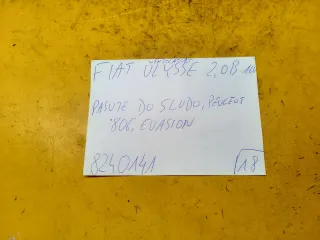 FIAT ULYSSE 2,0B
PASUJE DO SCUDO, PEUGEOT
806, EVASION
8240141
18